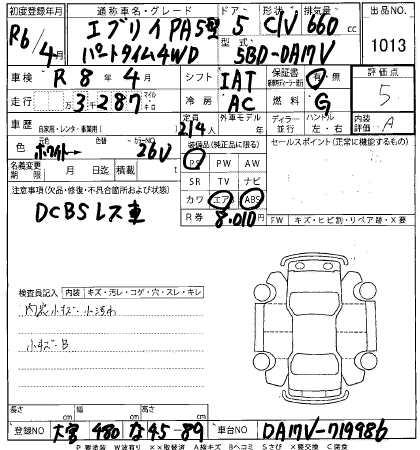 初度登録年月 通称車名・グレード ドア 形状 排気量 出品NO.
R6/4月 エブリイPA5型 5 C/V 660cc 1013
パートタイム4WD 型式 5BD-DA17V
車検 R 8年 4月 シフト IAT 保証書 有・無 評価点 5
走行 3千287 マイル キロ 冷房 AC 燃料 G 内装評価 A
車歴 自家用・レンタ・事業用( ) 定員 2/4人 外車モデル ディーラー 並行 ハンドル 左・右
色 ホワイト 色替 カラーNO 26U 装備品(純正品に限る) セールスポイント(正常に機能するもの)
名義変更期限 月 日迄 積載 t PS PW AW
SR TV ナビ
注意事項(欠品・修復・不具合箇所および状態) カワ エアB ABS
DCBSレス車 R券 8,010円 FW キズ・ヒビ割・リペア跡・X要
検査員記入 内装 キズ・汚レ・コゲ・穴・スレ・キレ
内装小キズ・小汚れ
小キズ・B
長さ cm 幅 cm 高さ cm
登録NO 大宮 480 な 45-89 車台NO DA17V-719986
P 要塗装 W波有り ××交換済 A線キズ Bヘコミ Sさび ×要交換 C腐食